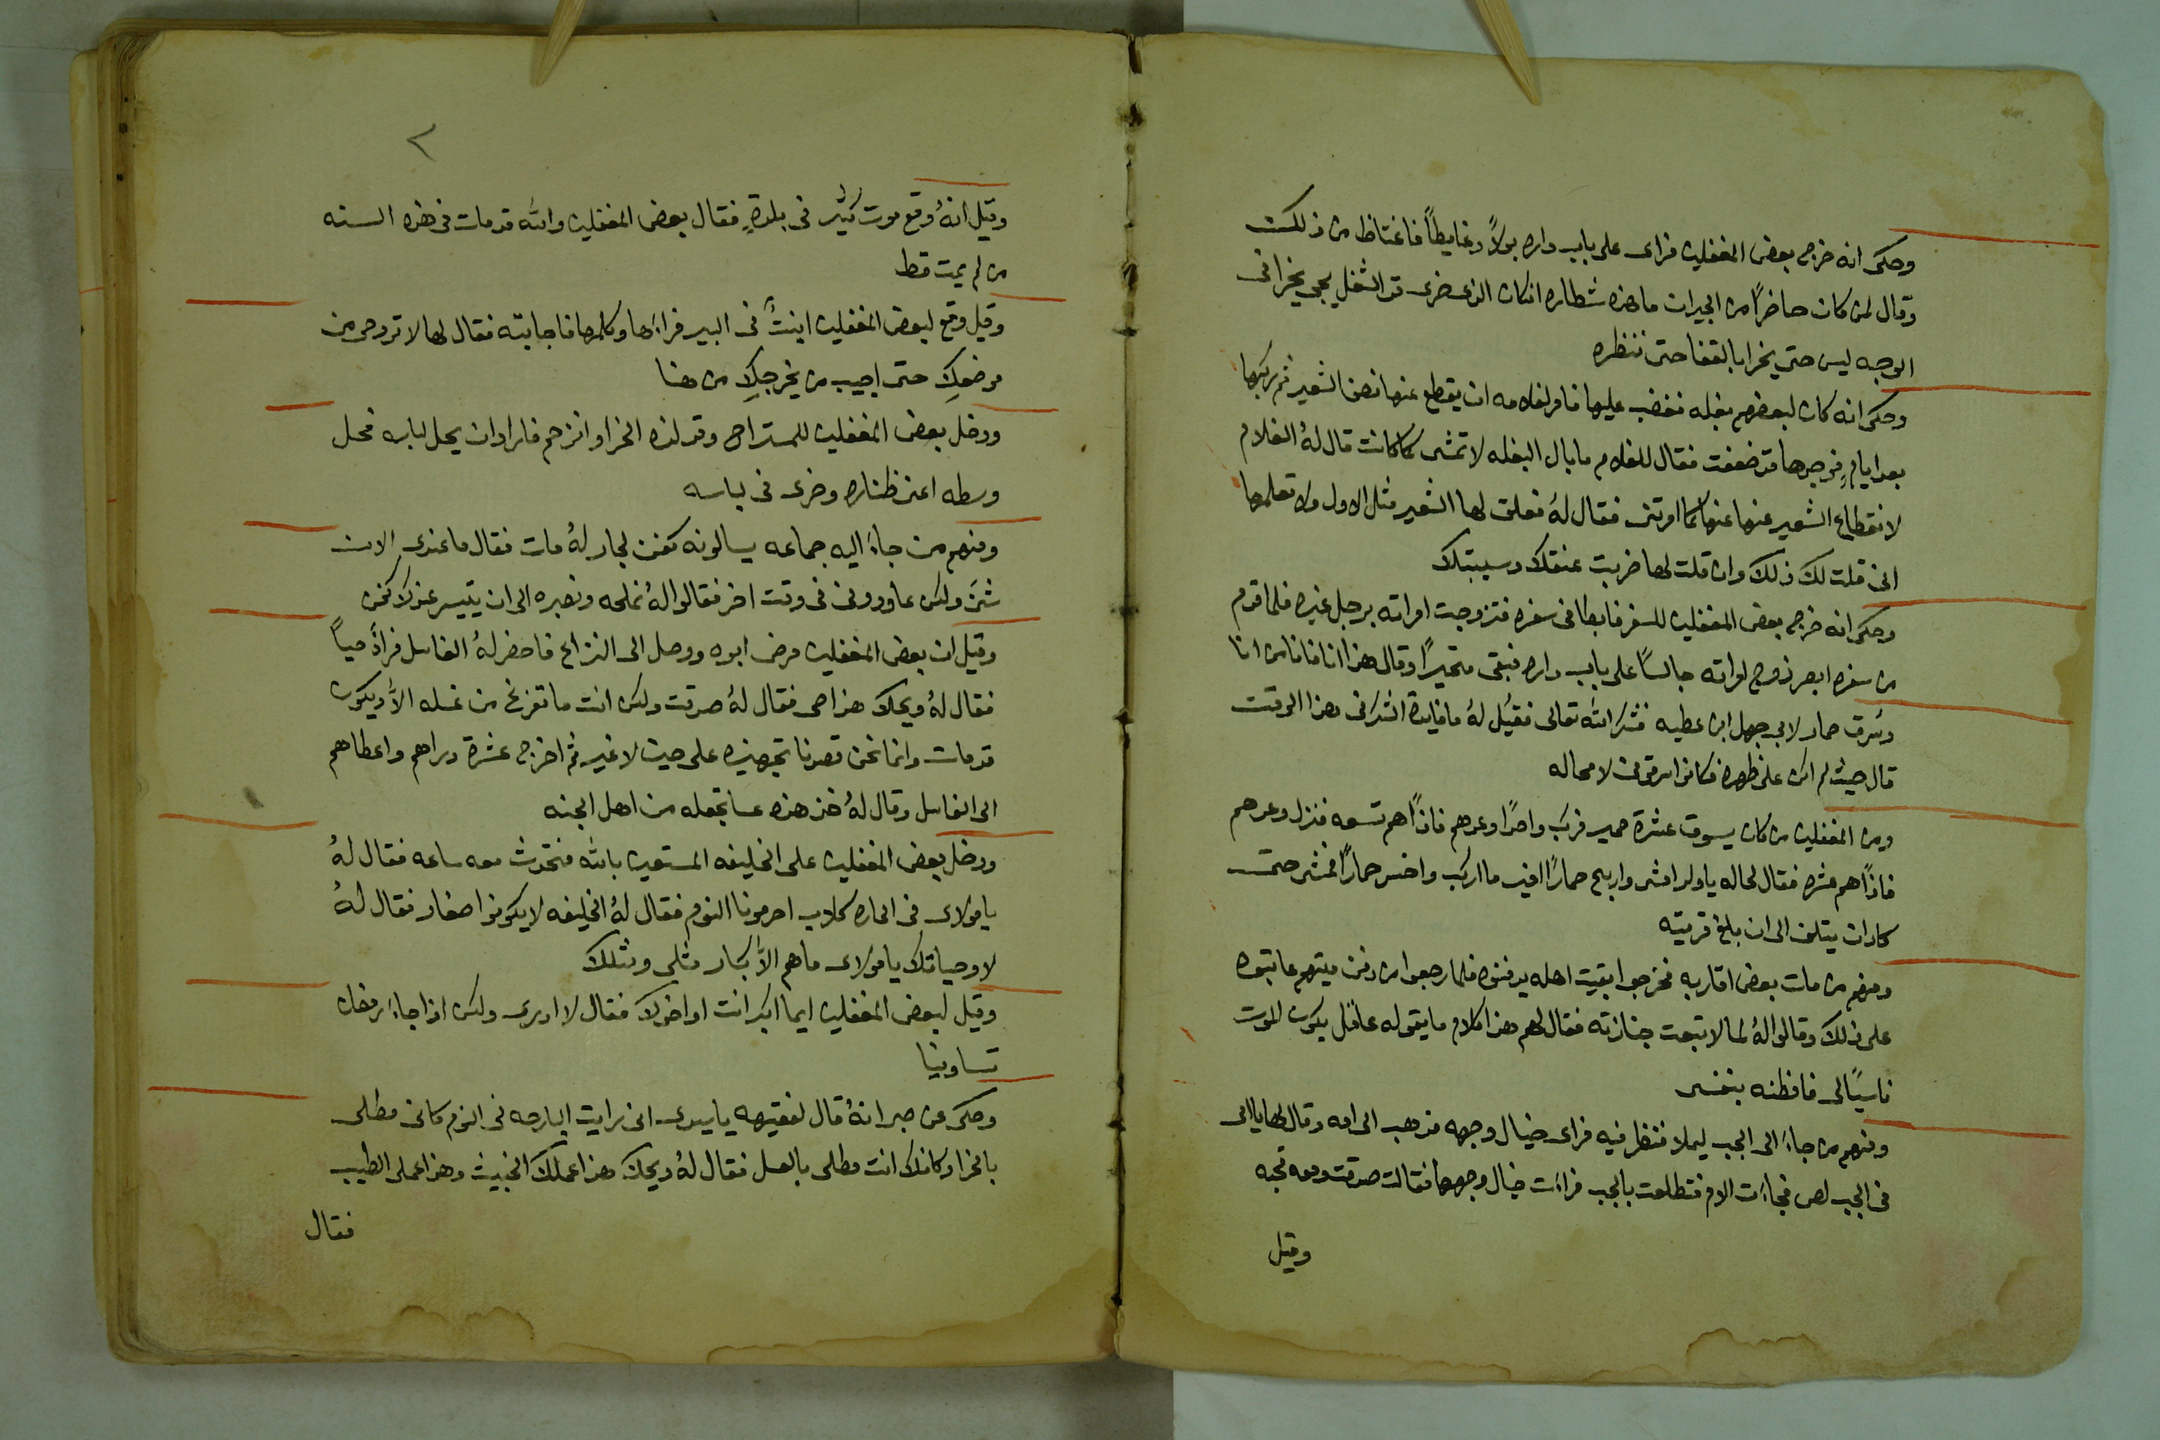 وحكى انه خرج بعض المغفلين فراى على باب داره بولاً وغايطاً فاغتاظ من ذلك
وقال لمن كان حاضراً من الجيران ما هذه شطاره انكان الذى خرى قد الشغل يجى يخرا فى
الوجه ليس حتى يخرا بالقفا حتى ننظره
وحكى انه كان لبعضهم بغله فغضب عليها فامر لغلامه ان يقطع عنها نصف الشعير ثم ركبها
بعد ايامٍ فوجدها قد ضعفت فقال للغلام ما بال البغله لا تمشى كما كانت قال لهُ الغلام
لانقطاع الشعير عنها عنها كما امرتنى فقال لهُ فعلق لها الشعير مثل الاول ولا تعلمها
انى قلت لك ذلك وان قلت لها ضربت عنقك وسيبتك
وحكى انه خرج بعض المغفلين للسفر فابطا فى سفره فتزوجت امراته برجل غيره فلما قدم
من سفره ابصر زوج امراته جالساً على باب داره فبقى متحيراً وقال هذا انا فانا من انا
وسُرق حمار لابى جهل ابن عطيه فشكر الله تعالى فقيل لهُ ما فايدة الشكر فى هذا الوقت
قال حيث لم اكن على ظهره فكانوا سرقونى لا محاله
ومن المغفلين من كان يسوق عشرة حمير فركب واحدًا وعدهم فاذًا هم تسعه فنزل وعدهم
فاذًا هم عشره فقال لحاله يا ولد امشى واربح حمارًا اخير ما اركب واخسر حمارًا فمشى حتى
كاد ان يتلف الى ان بلغ قريته
ومنهم من مات بعض اقاربه فخرجوا بقيت اهله يدفنوه فلما رجعوا من دفن ميتهم عاتبوه
على ذلك وقالوا لهُ لما لا تبعت جنازته فقال لهم هذا كلام ما يقوله عاقل يكون الموت
ناسيًا لى فافطنه بنفسى
ومنهم من جاءَ الى الجب ليملا فنظر فيه فراى خيال وجهه فذهب الى امه وقال لها يا امى
فى الجب لص فجاءَت الام فتطلعت بالجب فراءَت خيال وجهها فقالت صدقت ومعه قحبه
وقيل
٢
وقيل انهُ وقع موت كثير فى بلدةٍ فقال بعض المغفلين والله قد مات فى هذه السنه
من لم يمت قط
وقيل وقع لبعض المغفلين ابنتٌ فى البير فراءَها وكلمها فاجابته فقال لها لا تروحى من
موضعكِ حتى اجيب من يخرجكِ من هنا
ودخل بعض المغفلين للمستراح وقد لذه الخرا وانزحم فاراد ان يحل لباسه فحل
وسطه اعنى ظناره وخرى فى لباسه
ومنهم من جاءَ اليه جماعه يسالونه كفن لجار لهُ مات فقال ما عندى الان
شىَ ولكن عاودونى فى وقت اخر فقالوا لهُ نملحه ونصبره الى ان يتيسر عندك كفن
وقيل ان بعض المغفلين مرض ابوه ووصل الى النزاع فاحضر لهُ الغاسل فراهُ حياً
فقال لهُ ويحك هذا حى فقال لهُ صدقت ولكن انت ما تفرغ من غسله الَّا ويكون
قد مات وانما نحن قصدنا تجهيزه على حين لا غير ثم اخرج عشرة دراهم واعطاهم
الى الغاسل وقال لهُ خذ هذه عسا تجعله من اهل الجنه
ودخل بعض المغفلين على الخليفه المستعين بالله فتحدث معه ساعه فقال لهُ
يا مولاى فى الحاره كلاب احرمونا النوم فقال لهُ الخليفه لا يكونوا صغار فقال لهُ
لا وحياتك يا مولاى ما هم الَّا كبار مثلى ومثلك
وقيل لبعض المغفلين ايما اكبر انت او اخوك فقال لا ادرى ولكن اذا جاءَ رمضان
تساوينا
وحكى عن صبى انهُ قال لفقيهه يا سيدى انى رايت البارحه فى النوم كانى مطلى
بالخرا وكانك انت مطلى بالعسل فقال لهُ ويحك هذا عملك الخبيث وهذا عملى الطيب
فقال